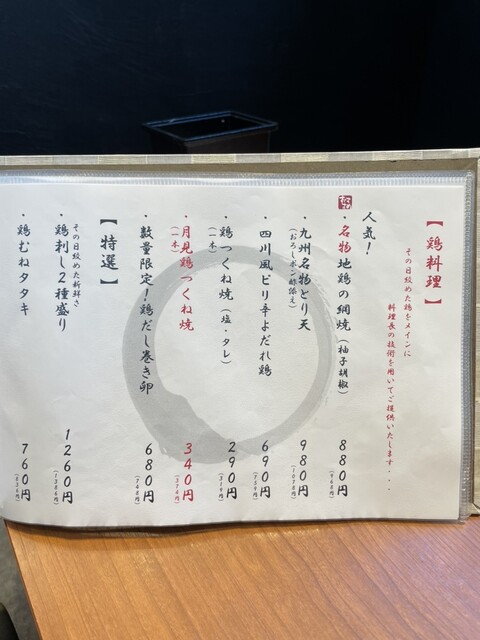 【鶏料理】
その日絞めた鶏をメインに
料理長の技術を用いてご提供いたします・・・
人気！
・名物地鶏の網焼（柚子胡椒） 880円
（968円）
・九州名物とり天 980円
（おろしポン酢添え） （1078円）
・四川風ピリ辛よだれ鶏 690円
（759円）
・鶏つくね焼（塩・タレ） 290円
（一本） （319円）
・月見鶏つくね焼 340円
（一本） （374円）
・数量限定！鶏だし巻き卵 680円
（748円）
【特選】
その日絞めた新鮮さ
・鶏刺し2種盛り 1260円
（1386円）
・鶏むねタタキ 760円
（836円）